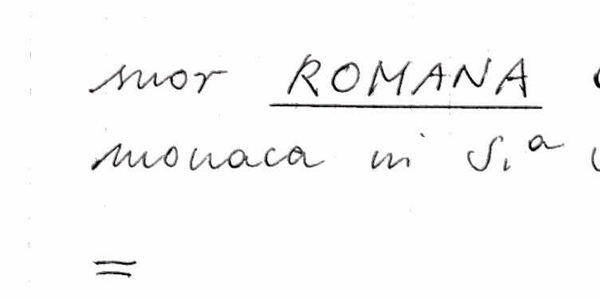 suor ROMANA
monaca in S.ª
=